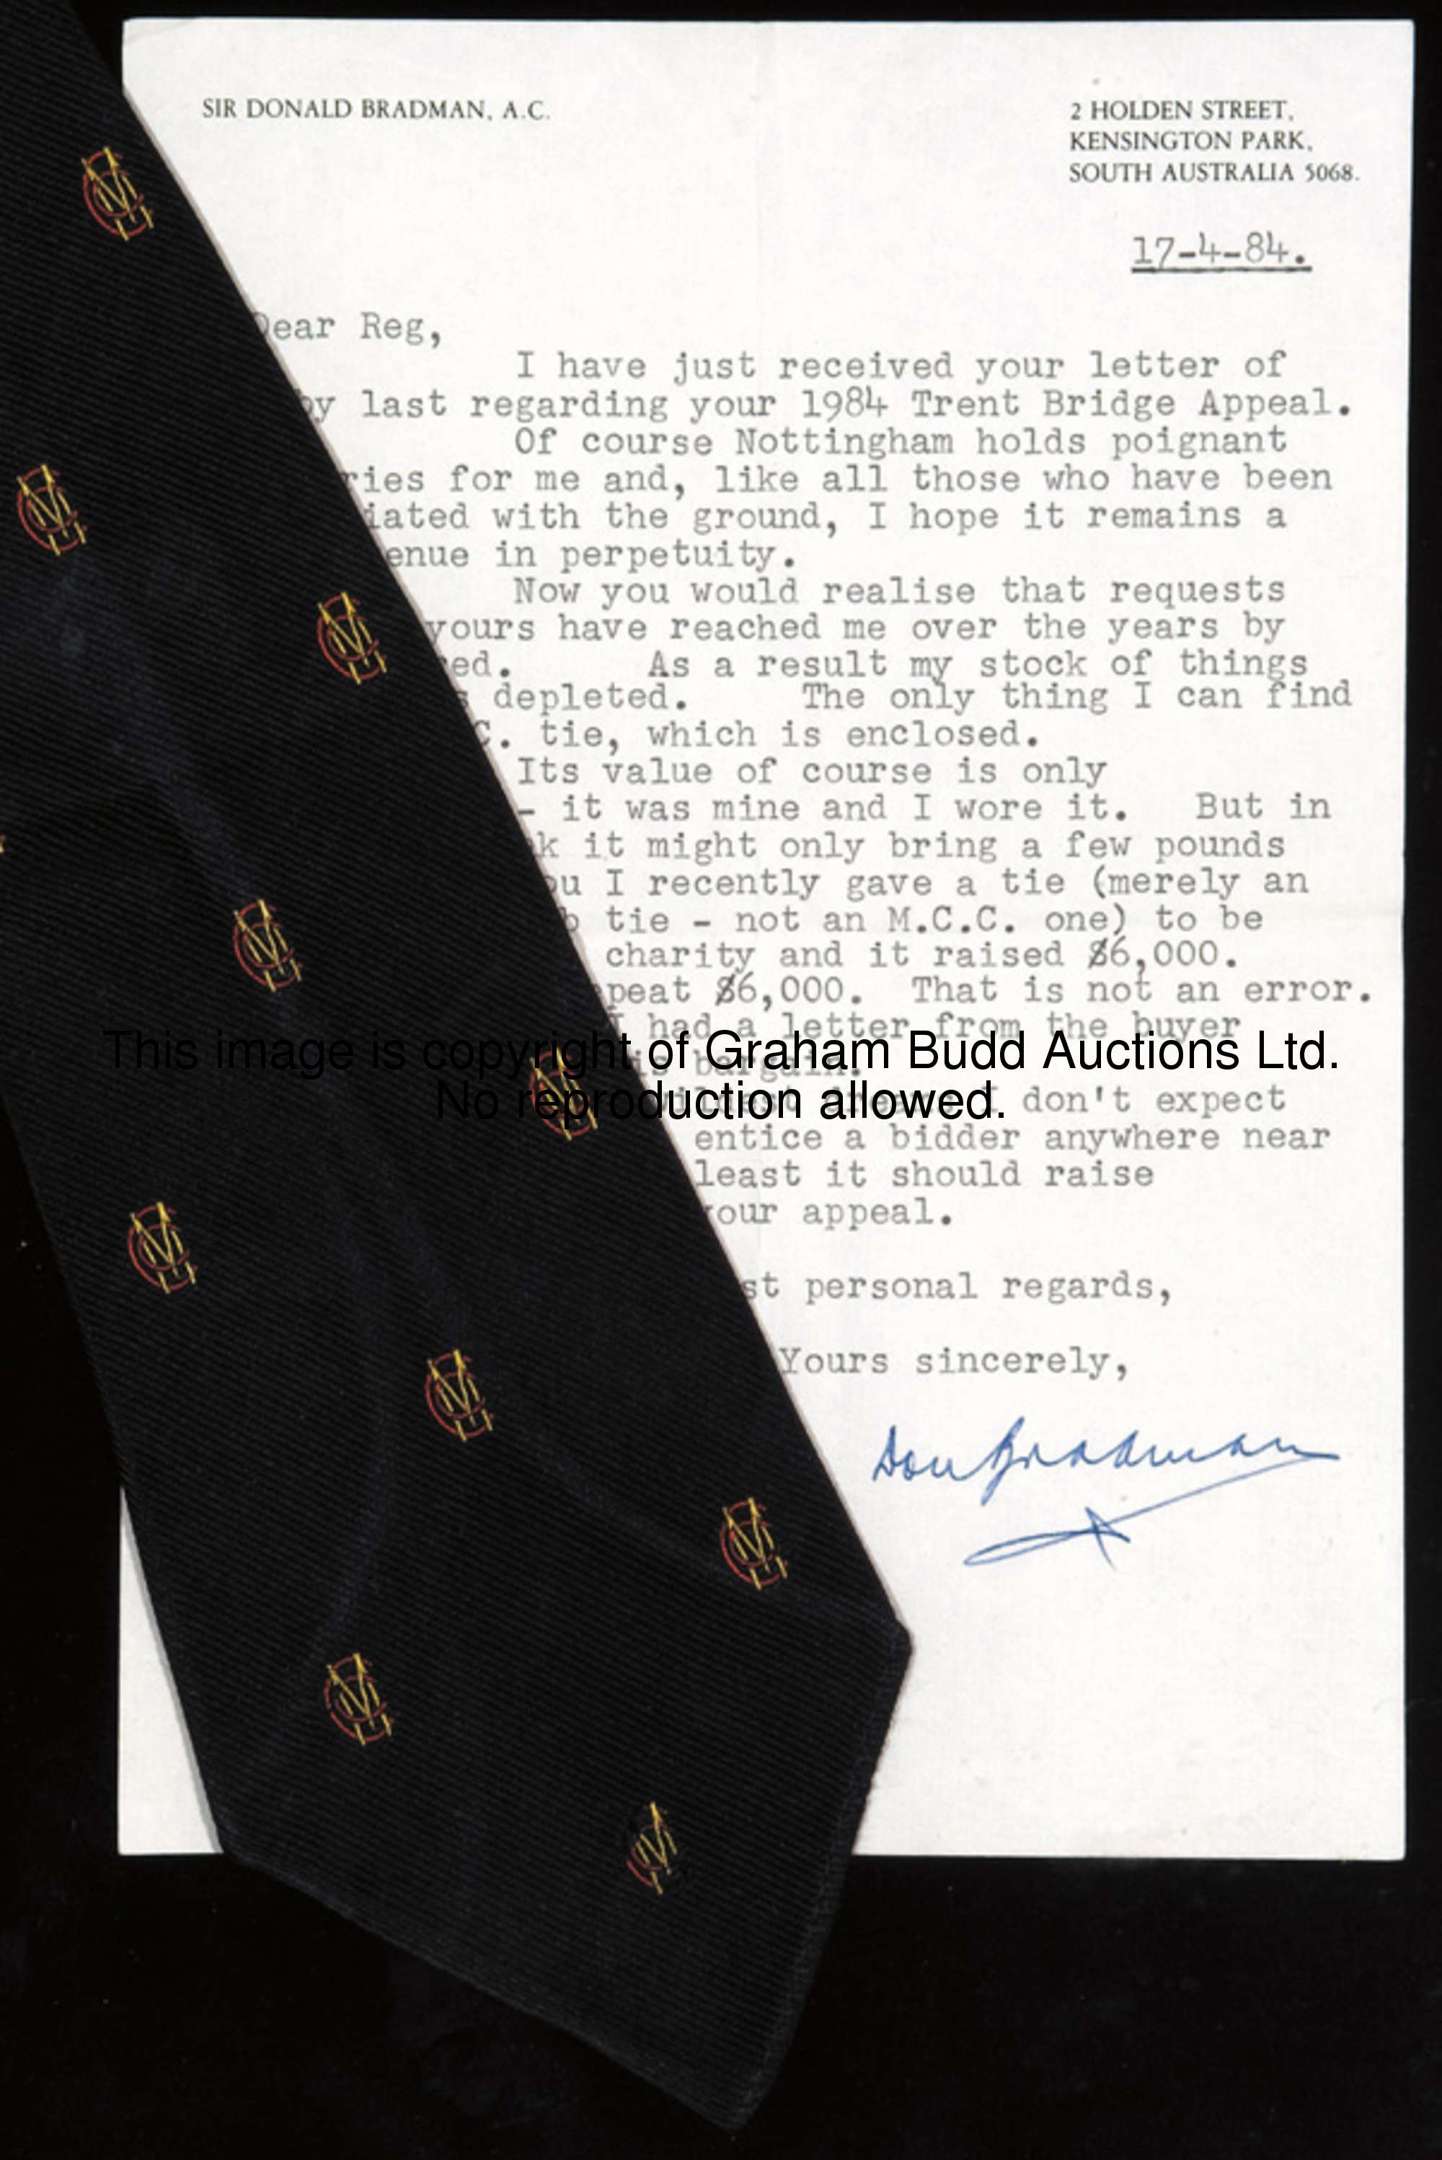 SIR DONALD BRADMAN, A.C.
2 HOLDEN STREET,
KENSINGTON PARK,
SOUTH AUSTRALIA 5068.
17-4-84.
Dear Reg,
I have just received your letter of
last regarding your 1984 Trent Bridge Appeal.
Of course Nottingham holds poignant
ries for me and, like all those who have been
iated with the ground, I hope it remains a
enue in perpetuity.
Now you would realise that requests
yours have reached me over the years by
ed. As a result my stock of things
s depleted. The only thing I can find
C. tie, which is enclosed.
Its value of course is only
- it was mine and I wore it. But in
k it might only bring a few pounds
ou I recently gave a tie (merely an
b tie - not an M.C.C. one) to be
charity and it raised $6,000.
peat $6,000. That is not an error.
I had a letter from the buyer
is bargain.
wildest dreams I don't expect
entice a bidder anywhere near
least it should raise
your appeal.
st personal regards,
Yours sincerely,
Don Bradman
This image is copyright of Graham Budd Auctions Ltd.
No reproduction allowed.